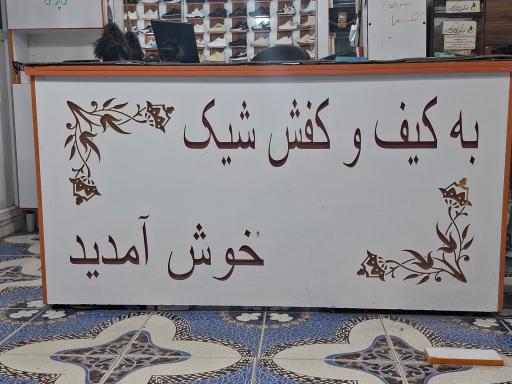 به کیف و کفش شیک
خوش آمدید